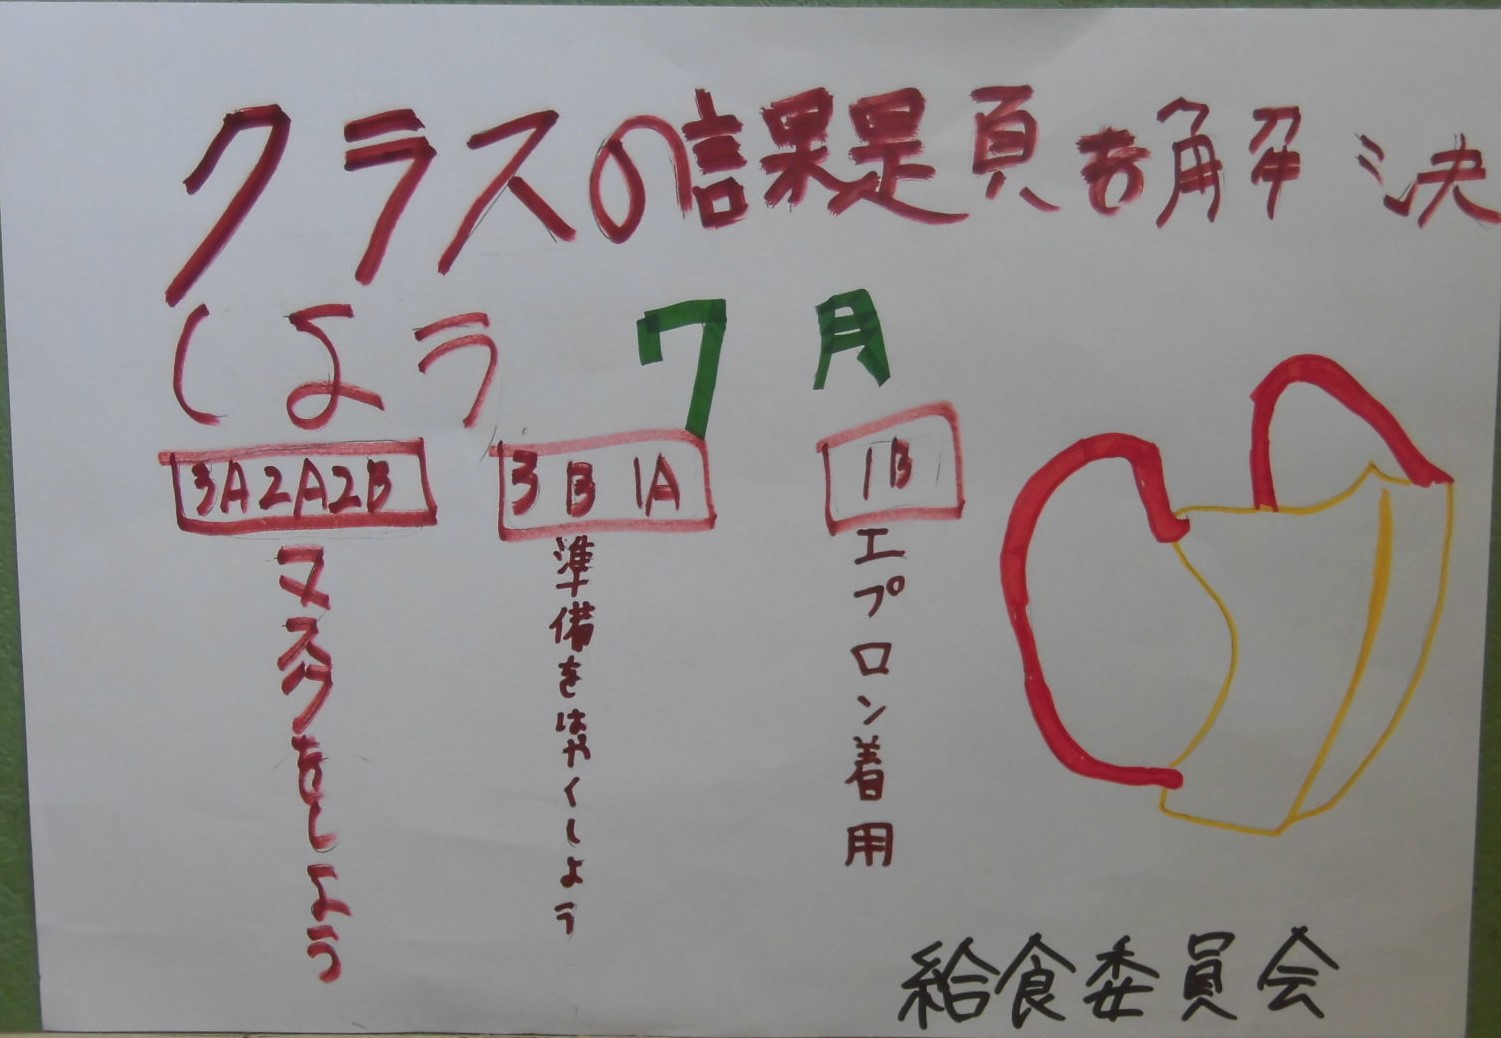 クラスの課題を解決
しよう 7月
3A2A2B
マスクをしよう
3B 1A
準備をはやくしよう
1B
エプロン着用
給食委員会